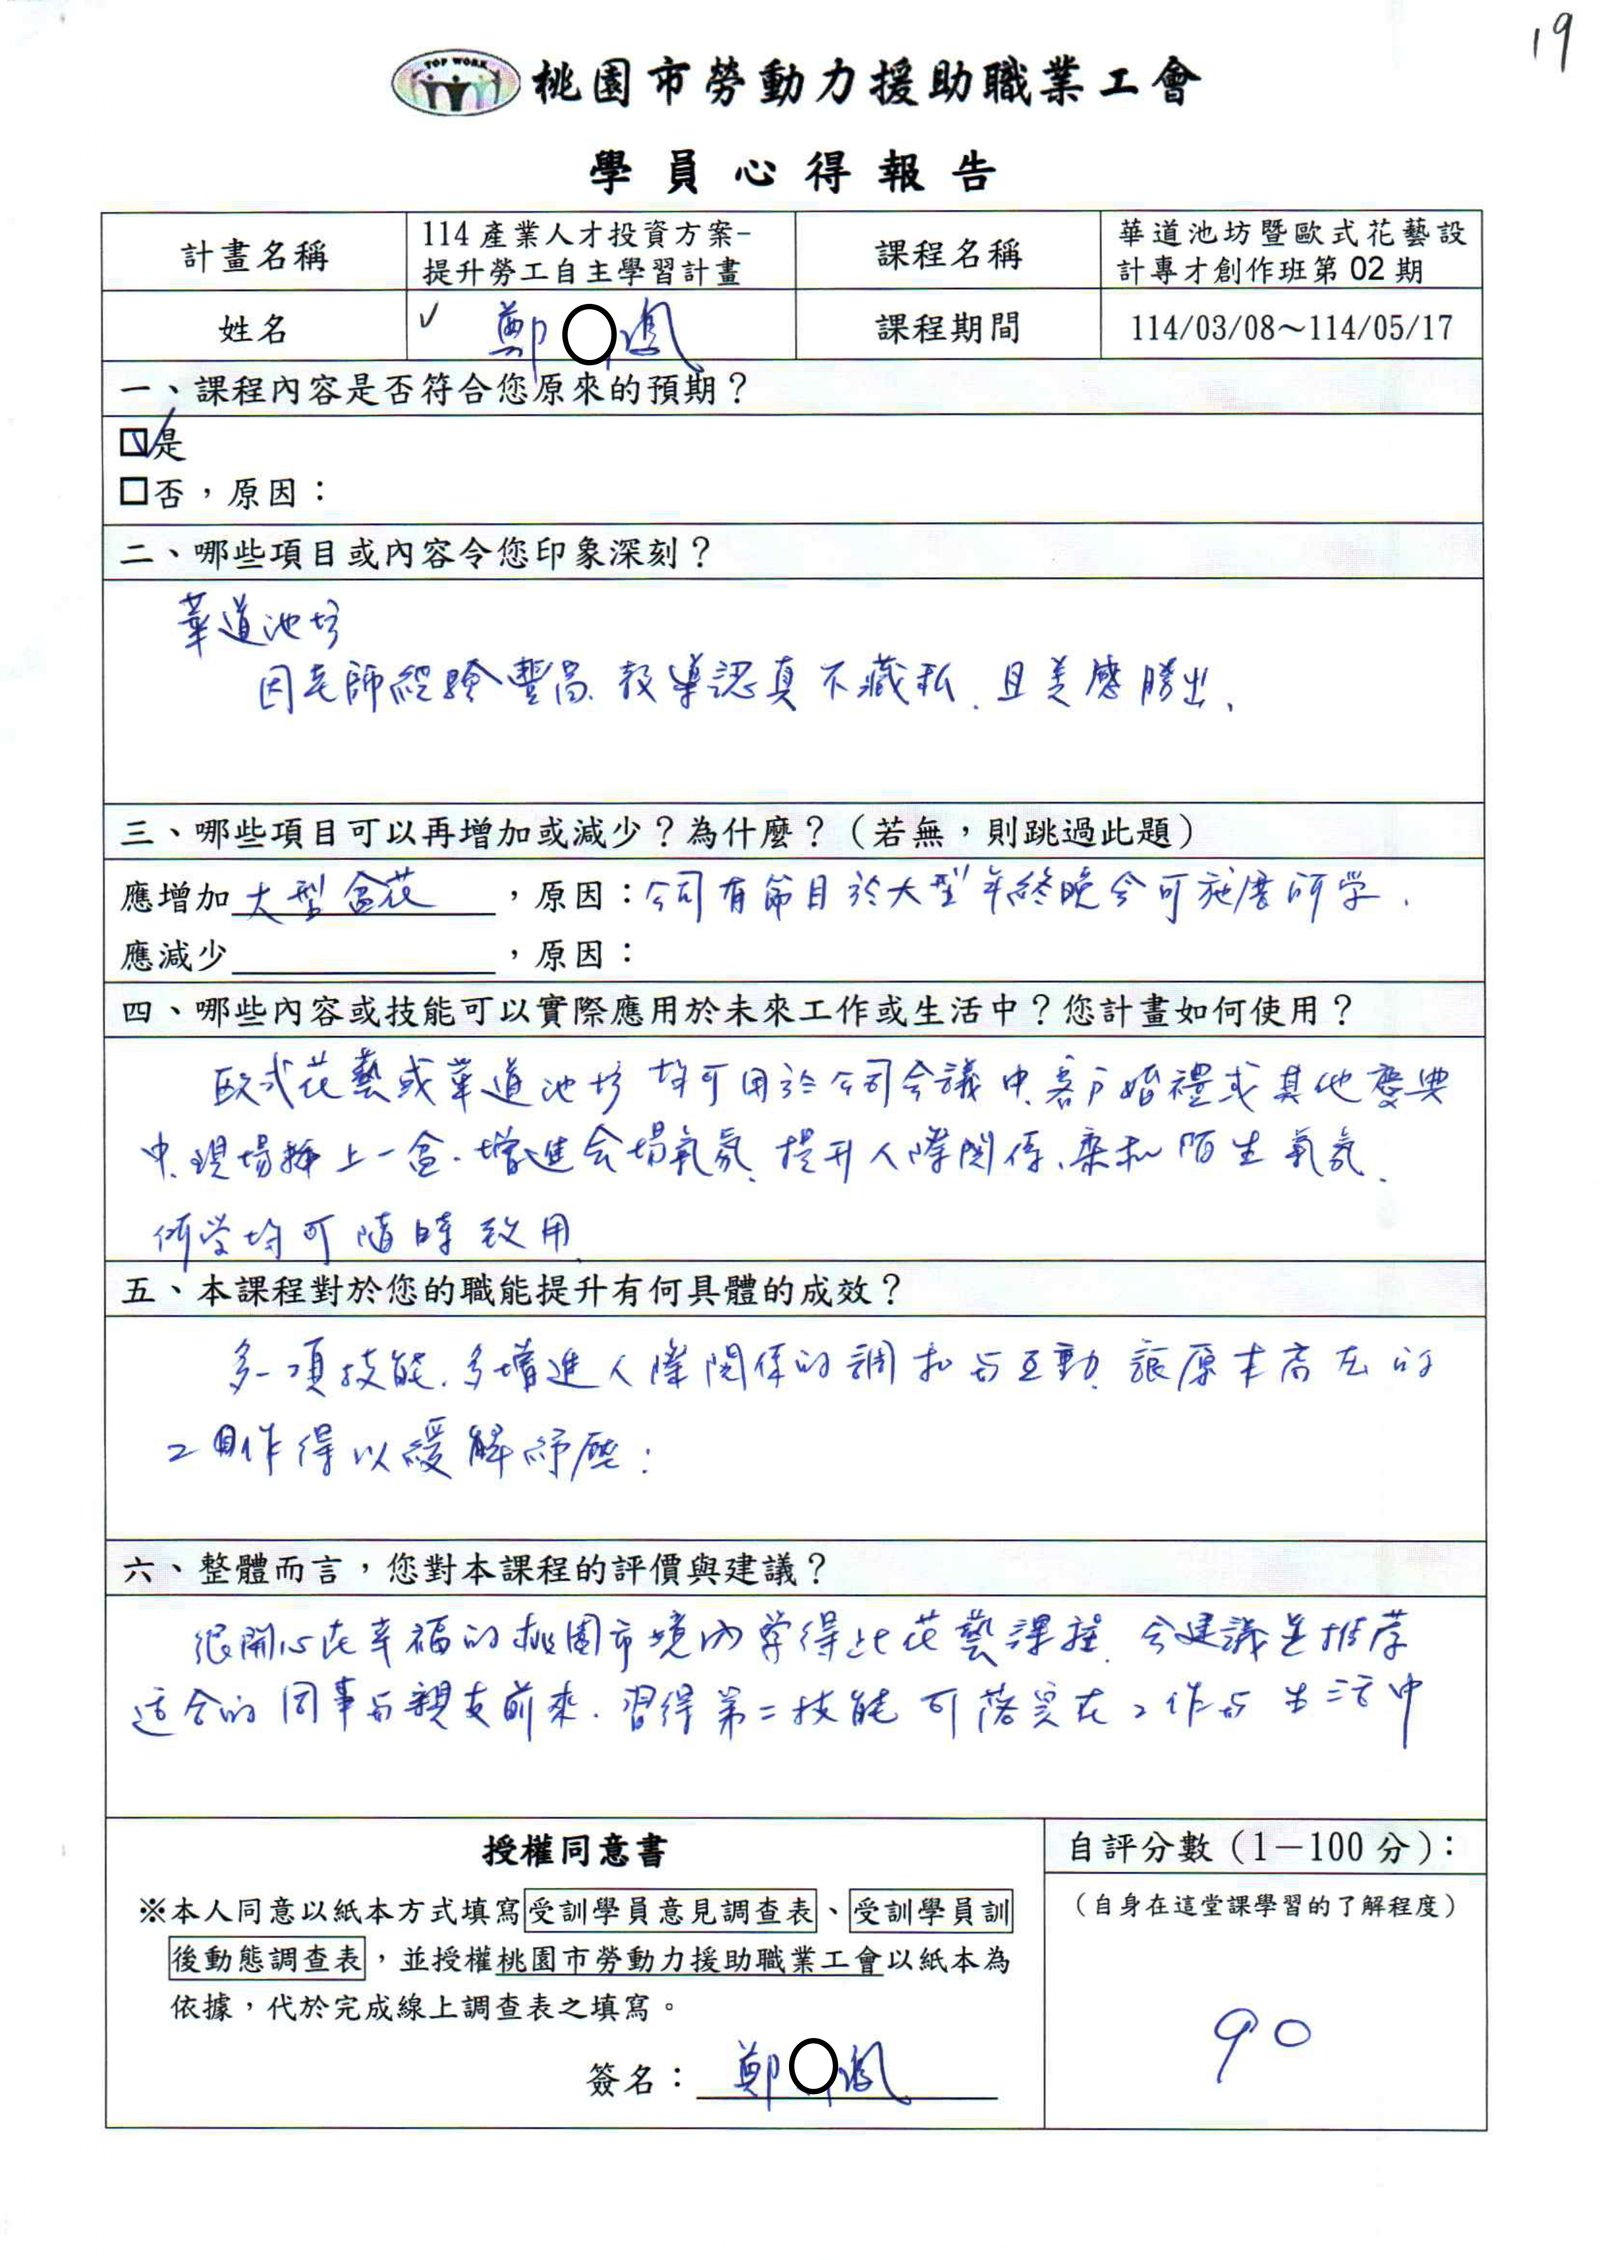 19
TOP WORK
桃園市勞動力援助職業工會
學員心得報告
計畫名稱
114產業人才投資方案-
提升勞工自主學習計畫
課程名稱
華道池坊暨歐式花藝設
計專才創作班第02期
姓名
✓ 鄭○鳳
課程期間
114/03/08～114/05/17
一、課程內容是否符合您原來的預期？
☑是
□否，原因：
二、哪些項目或內容令您印象深刻？
華道池坊
因老師經驗豐富、教導認真不藏私、且美感勝出、
三、哪些項目可以再增加或減少？為什麼？（若無，則跳過此題）
應增加大型盆花，原因：公司有節目於大型年終晚会可施展所学．
應減少＿＿＿＿，原因：
四、哪些內容或技能可以實際應用於未來工作或生活中？您計畫如何使用？
歐式花藝或華道池坊均可用於公司会議中、客戶婚禮或其他慶典
中、現場插上一盆．增進会場氣氛、提升人際関係、柔和陌生氣氛、
所学均可隨時致用
五、本課程對於您的職能提升有何具體的成效？
多一項技能、多增進人際関係的調和与互動、讓原本高压的
工作得以緩解紓壓．
六、整體而言，您對本課程的評價與建議？
很開心在幸福的桃園市境內学得此花藝課程、会建議並推荐
适合的同事与親友前來．習得第二技能可落实在工作与生活中
授權同意書
※本人同意以紙本方式填寫受訓學員意見調查表、受訓學員訓
後動態調查表，並授權桃園市勞動力援助職業工會以紙本為
依據，代於完成線上調查表之填寫。
簽名：鄭○鳳
自評分數（1－100分）：
（自身在這堂課學習的了解程度）
90